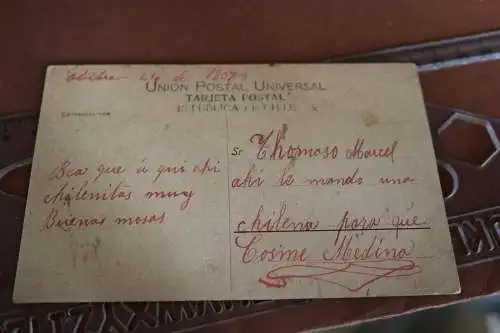 Octubre de 1907
UNION POSTAL UNIVERSAL
TARJETA POSTAL
REPUBLICA DE CHILE
Bea que a qui ahi
chilenitas muy
Buenas mosas
Sr Thomoso Marcel
ahi le mando una
chilena para que
Cosme Medina